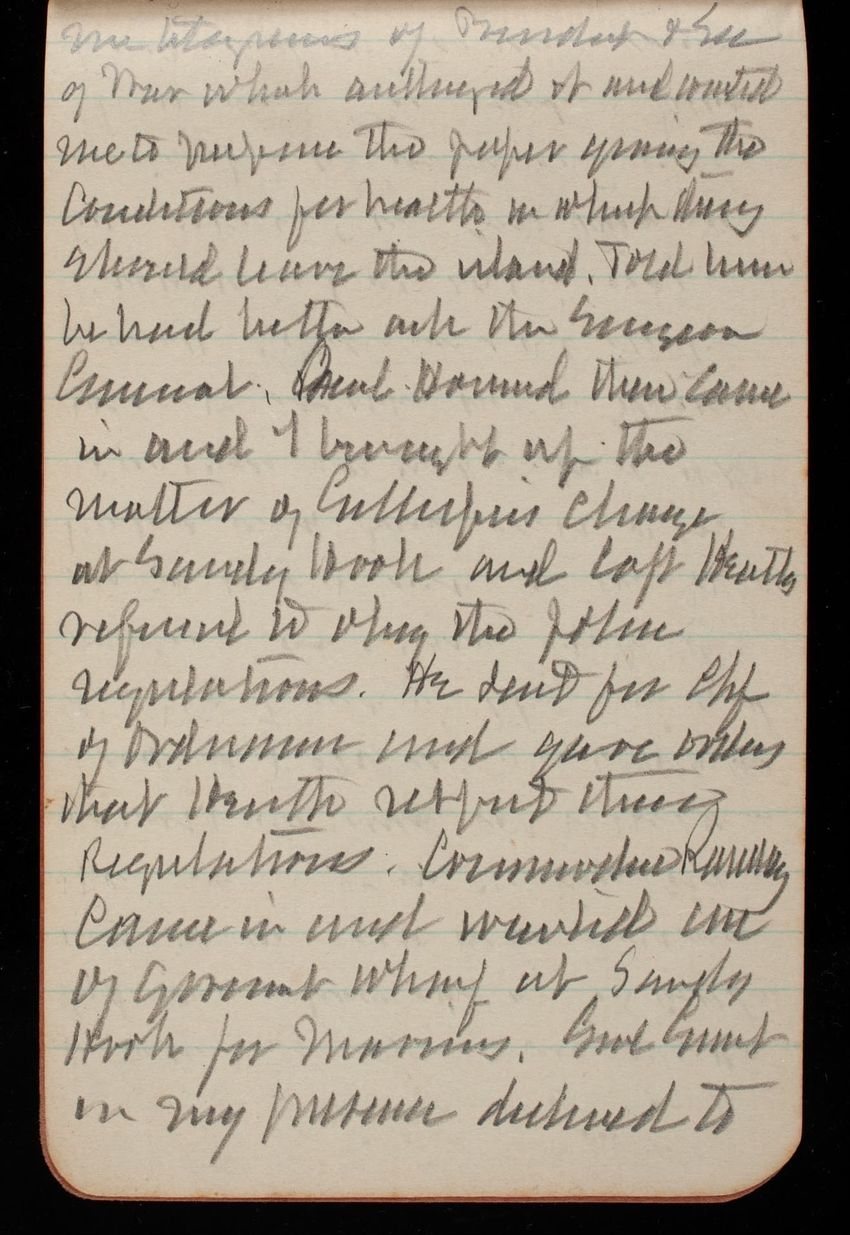 me telegrams of President & Sec
of War which authorized it and wanted
me to prepare the paper giving the
Conditions for health in which they
should leave the island. Told him
he had better ask the Surgeon
General. Genl. then came
in and I brought up the
matter of Gillespie's charge
at Sandy Hook and Capt Heath
refused to obey the police
regulations. He sent for Chf
of Ordnance and gave orders
that Heath respect these
Regulations. Commodore Ramsay
Came in and wanted use
of Government Wharf at Sandy
Hook for Marines. Grant
in my presence declined to